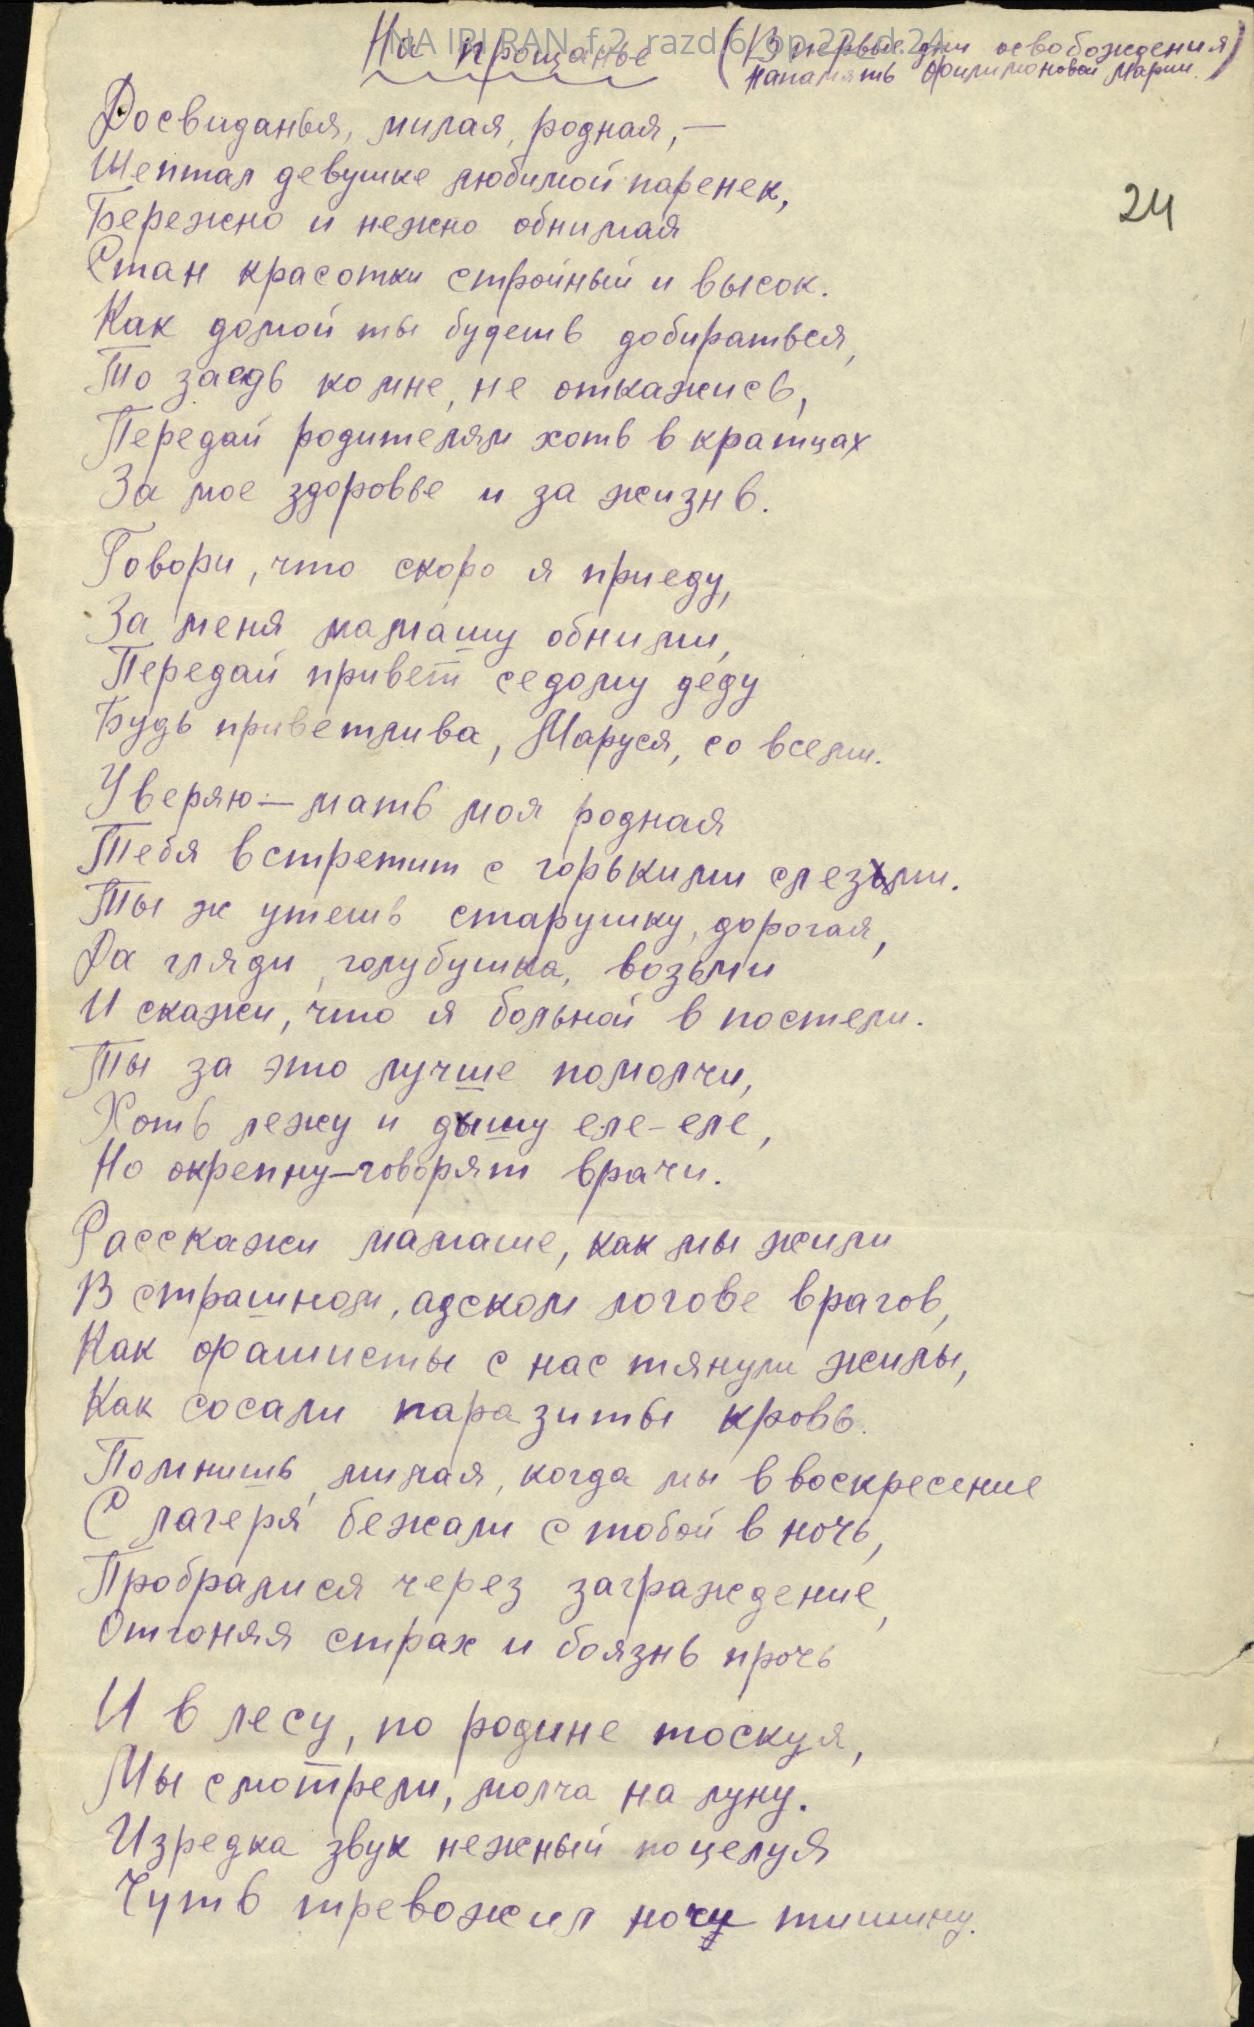 NA IRI RAN f.2 razd.6 op.22 d.24
На прощанье (В первые дни освобождения
напамять Филимоновой Марии.)
24
Досвиданья, милая, родная, —
Шептал девушке любимой паренек,
Бережно и нежно обнимая
Стан красотки стройный и высок.
Как домой ты будешь добираться,
То заедь ко мне, не откажись,
Передай родителям хоть в кратцах
За мое здоровье и за жизнь.
Говори, что скоро я приеду,
За меня мамашу обними,
Передай привет седому деду
Будь приветлива, Маруся, со всеми.
Уверяю — мать моя родная
Тебя встретит с горькими слезьми.
Ты ж утешь старушку, дорогая,
Да гляди, голубушка, возьми
И скажи, что я больной в постели.
Ты за это лучше помолчи,
Хоть лежу и дышу еле-еле,
Но окрепну—говорят врачи.
Расскажи мамаше, как мы жили
В страшном, адском логове врагов,
Как фашисты с нас тянули жилы,
Как сосали паразиты кровь.
Помнишь, милая, когда мы в воскресение
С лагеря бежали с тобой в ночь,
Пробралися через заграждение,
Отгоняя страх и боязнь прочь
И в лесу, по родине тоскуя,
Мы смотрели, молча на луну.
Изредка звук нежный поцелуя
Чуть тревожил ночу тишину.